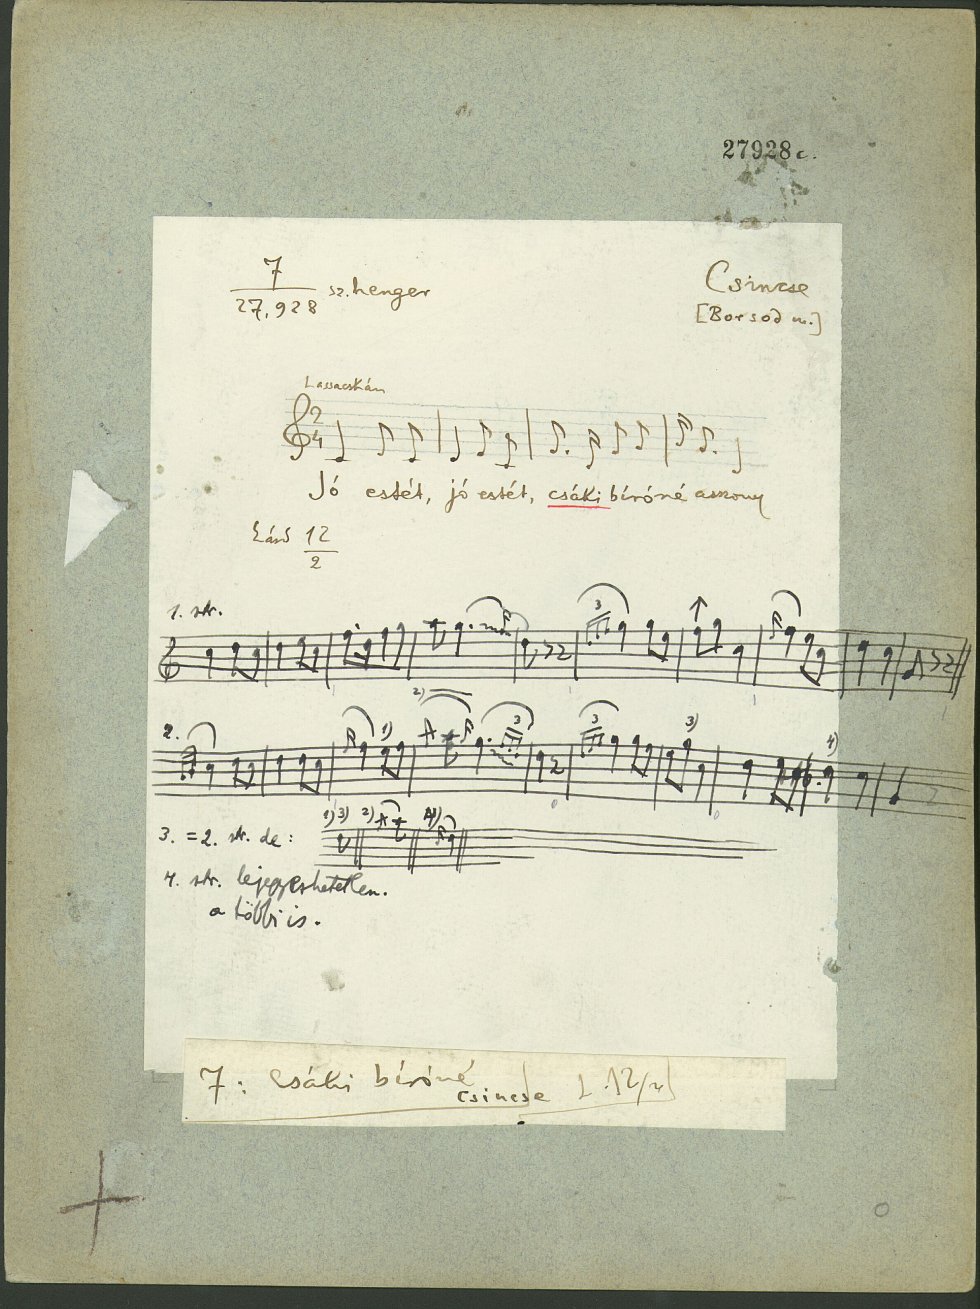 27928 c.
7
27,928 sz. henger
Csincse
[Borsod m.]
Lassacskán
2
4
Jó estét, jó estét, csáki bíróné asszony
Lásd 12
2
1. str.
3
3
2)
2.
1)
3
3
3)
4)
3. = 2. str. de:
1) 3) 2) 4)
4. str. lejegyezhetetlen.
a többi is.
7: Csáki bíróné
Csincse